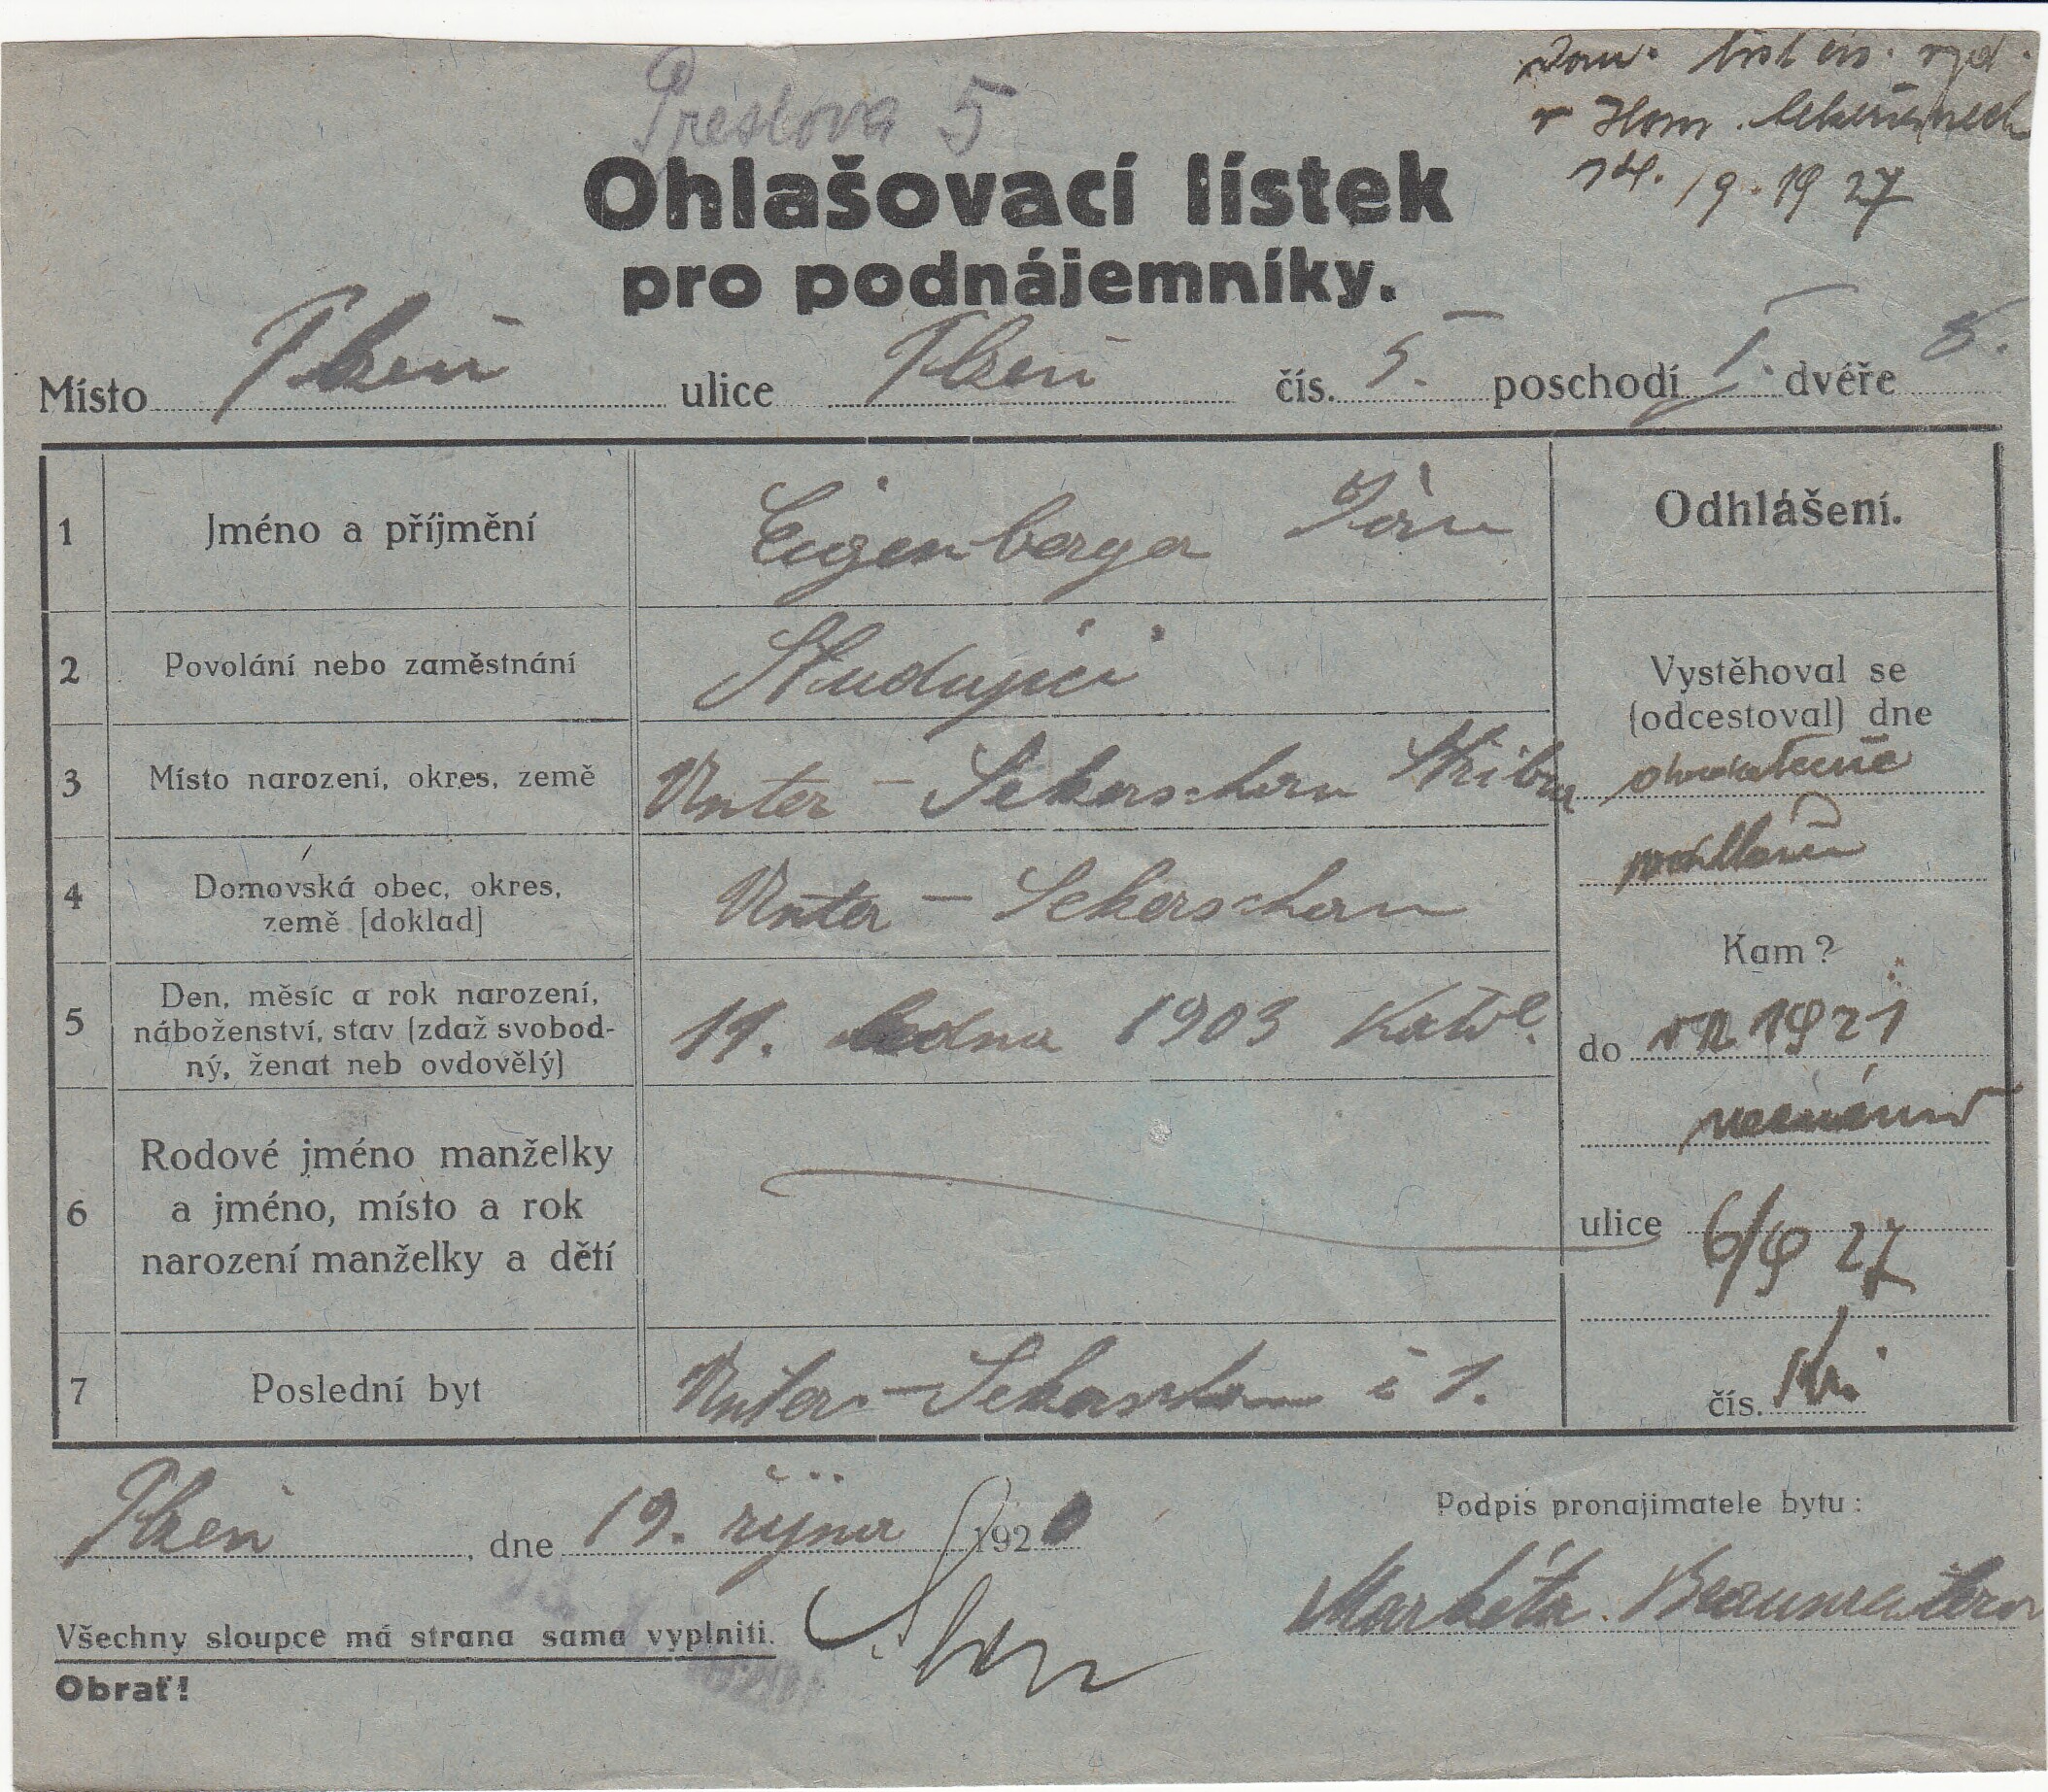 Preslova 5
Dom. list čís. vyd.
v Horn.
19. 19 27
Ohlašovací lístek
pro podnájemníky.
Místo Plzeň ulice Plzeň čís. 5. poschodí I. dvéře 8.
1 Jméno a příjmění Eigenberger Odhlášení.
2 Povolání nebo zaměstnání Studující
Vystěhoval se
(odcestoval) dne
3 Místo narození, okres, země Unter - Sekerschan Stříbro
4 Domovská obec, okres,
země [doklad] Unter - Sekerschan
Kam?
5 Den, měsíc a rok narození,
náboženství, stav (zdaž svobod-
ný, ženat neb ovdovělý) 11. ledna 1903 Katol.
do 1921
6 Rodové jméno manželky
a jméno, místo a rok
narození manželky a dětí
ulice 6/9 27
7 Poslední byt Unter - Sekerschan č 1.
čís.
Plzeň, dne 19. října 1920
Podpis pronajimatele bytu:
Markéta
Všechny sloupce má strana sama vyplniti.
Obrať!